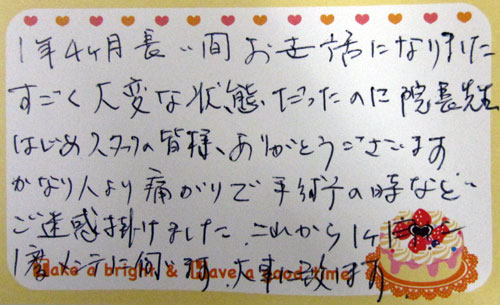 1年4ヶ月長い間お世話になりました
すごく大変な状態だったのに院長先生
はじめスタッフの皆様、ありがとうございます
かなり人より痛がりで手術の時など
ご迷惑掛けました。これから1ヶ月に
1度メンテに伺います。大事に改ます
Make a bright & Have a good time